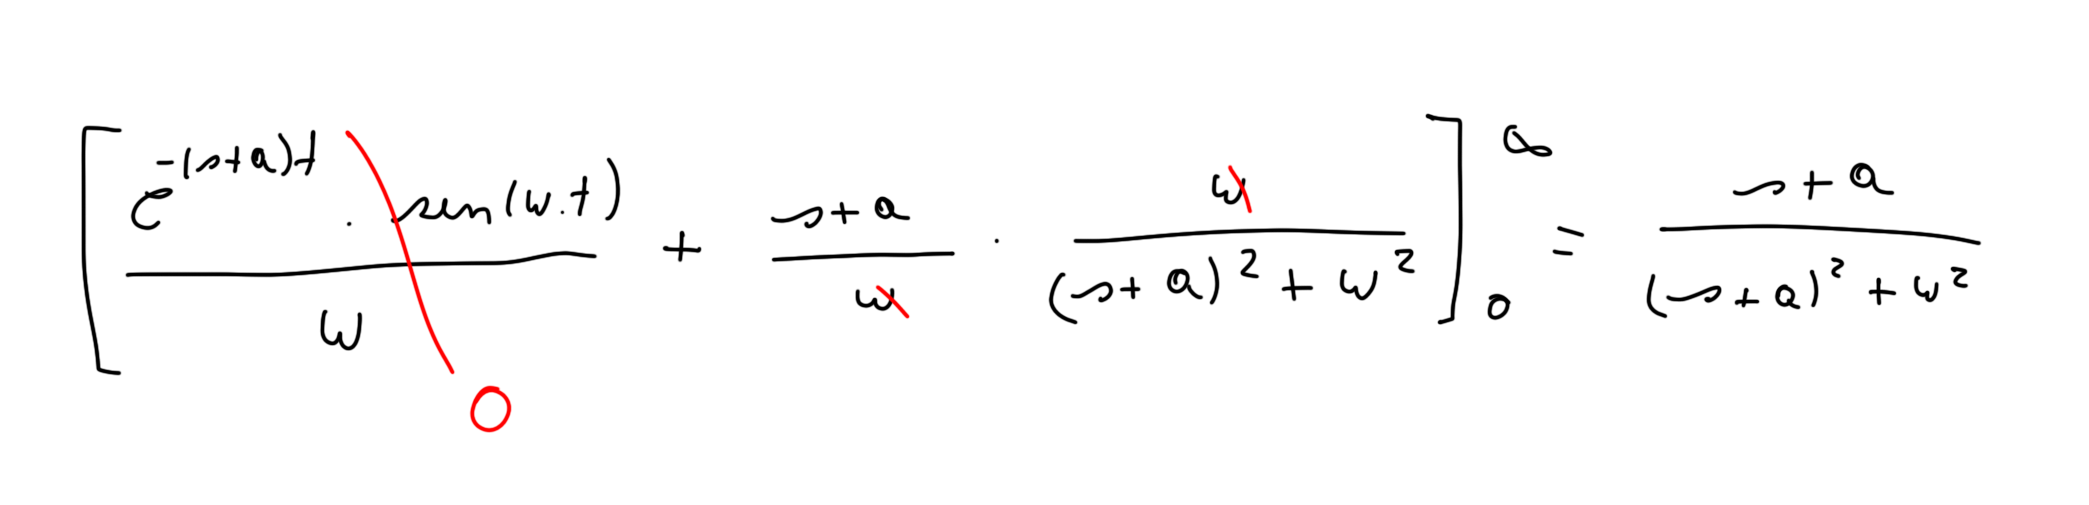 [ e^{-(s+a)t} · sen(w.t) / w + (s+a)/w · w/((s+a)^2 + w^2) ]_0^∞ = (s+a)/((s+a)^2 + w^2)
0